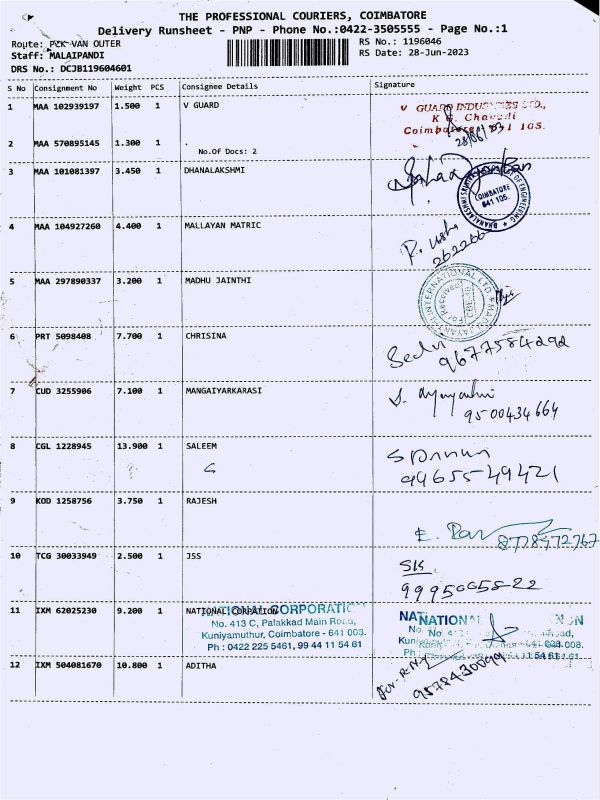 THE PROFESSIONAL COURIERS, COIMBATORE
Delivery Runsheet - PNP - Phone No.:0422-3505555 - Page No.:1
Route: PZK VAN OUTER
RS No.: 1196046
Staff: MALAIPANDI
RS Date: 28-Jun-2023
DRS No.: DCJB119604601
S No Consignment No Weight PCS Consignee Details Signature
1 MAA 102939197 1.500 1 V GUARD
V GUARD INDUSTRIES LTD.,
K G Chavadi
Coimbatore 641 105.
28/06/23
2 MAA 570895145 1.300 1 .
No.Of Docs: 2
3 MAA 101081397 3.450 1 DHANALAKSHMI
COIMBATORE
641 105.
4 MAA 104927260 4.400 1 MALLAYAN MATRIC
5 MAA 297890337 3.200 1 MADHU JAINTHI
MADHU JAYANTHI INTERNATIONAL LTD
6 PRT 5098408 7.700 1 CHRISINA
9677584292
7 CUD 3255906 7.100 1 MANGAIYARKARASI
9500434664
8 CGL 1228945 13.900 1 SALEEM
9965549421
9 KOD 1258756 3.750 1 RAJESH
8778972767
10 TCG 30033949 2.500 1 JSS
9995005822
11 IXM 62025230 9.200 1 NATIONAL CORPATION
NATIONAL CORPORATION
No. 413 C, Palakkad Main Road,
Kuniyamuthur, Coimbatore - 641 008.
Ph : 0422 225 5461, 99 44 11 54 61
12 IXM 504081670 10.800 1 ADITHA
9578430099